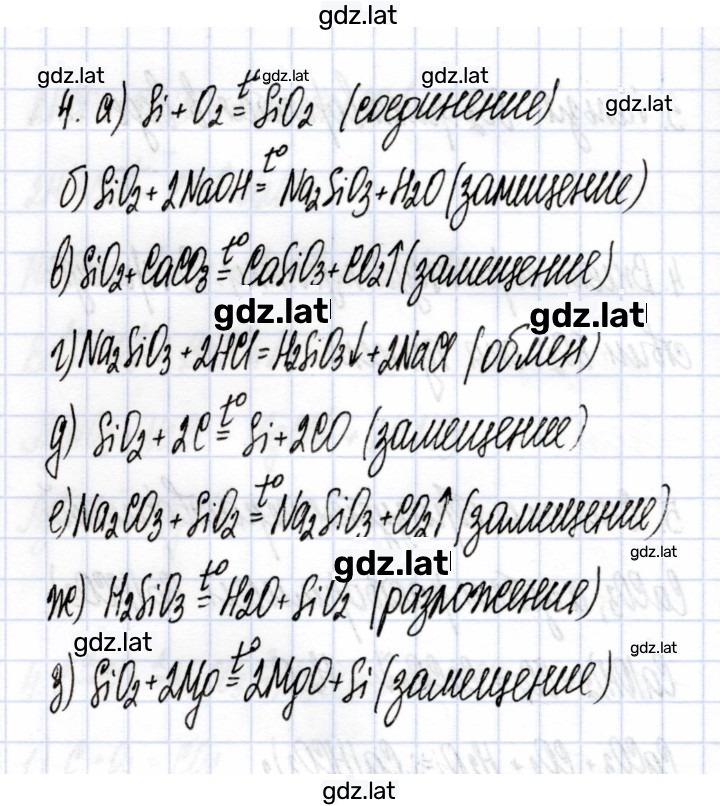 gdz.lat
gdz.lat gdz.lat gdz.lat gdz.lat
4. а) Si + O₂ =t° SiO₂ (соединение)
б) SiO₂ + 2NaOH =t° Na₂SiO₃ + H₂O (замещение)
в) SiO₂ + CaCO₃ =t° CaSiO₃ + CO₂↑ (замещение)
gdz.lat gdz.lat
г) Na₂SiO₃ + 2HCl = H₂SiO₃↓ + 2NaCl (обмен)
д) SiO₂ + 2C =t° Si + 2CO (замещение)
е) Na₂CO₃ + SiO₂ =t° Na₂SiO₃ + CO₂↑ (замещение)
gdz.lat gdz.lat
ж) H₂SiO₃ =t° H₂O + SiO₂ (разложение)
gdz.lat gdz.lat
з) SiO₂ + 2Mg =t° 2MgO + Si (замещение)
gdz.lat